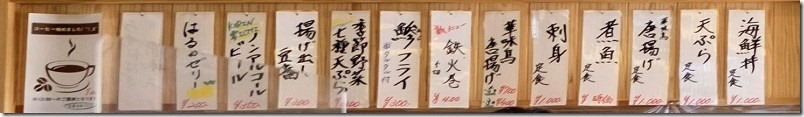 海鮮丼
定食
¥1,000
天ぷら
定食
¥1,000
華味鳥
唐揚げ
定食
¥1,000
煮魚
定食
刺身
定食
¥1,000
華味鳥
唐揚げ
鉄火巻
¥400
鯵フライ
¥300
季節野菜
七種天ぷら
揚げ出し
豆腐
¥300
KIRIN
ノンアルコール
ビール
¥350
はるのゼリー
¥200
コーヒー始めました!